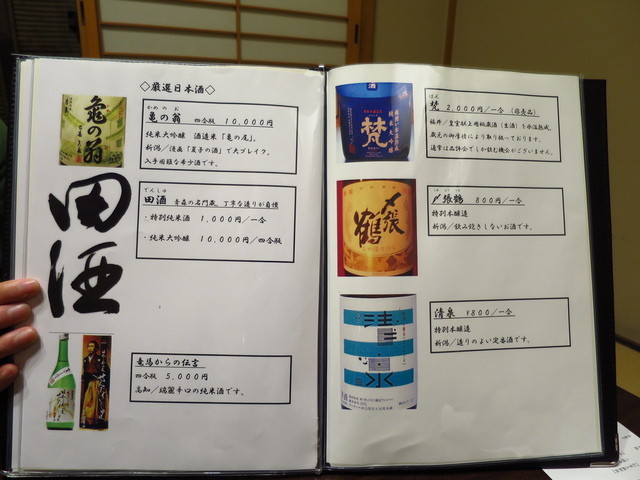 ◇厳選日本酒◇
亀の翁
かめのお
亀の翁 四合瓶 10,000円
純米大吟醸 酒造米「亀の尾」。
新潟/漫画「夏子の酒」で大ブレイク。
入手困難な希少酒です。
田酒
でんしゅ
田酒 青森の名門蔵。丁寧な造りが自慢
・特別純米酒 1,000円/一合
・純米大吟醸 10,000円/四合瓶
竜馬からの伝言
四合瓶 5,000円
高知/端麗辛口の純米酒です。
酒
梵
純米大吟醸
ぼん
梵 2,000円/一合 (非売品)
福井/皇室献上用秘蔵酒(生酒)を氷温熟成。
蔵元の御厚情により取り続いております。
通常は品評会でしか飲む機会がございません。
〆張鶴
〆張鶴 800円/一合
特別本醸造
新潟/飲み飽きしないお酒です。
清泉
清泉 ¥800/一合
特別本醸造
新潟/造りのよい定番酒です。